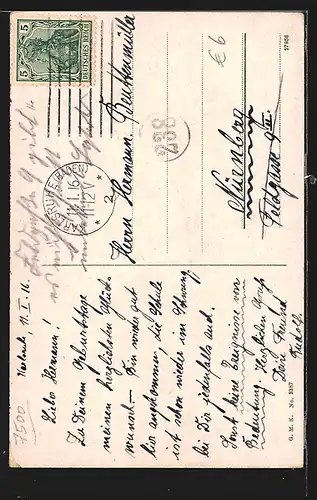 Karlsruhe, 11. I. 16.
Lieber Hermann!
Zu Deinem Geburtstage
meinen herzlichsten Glück-
wunsch – Bin wieder gut
hier angekommen, die Schule
ist schon wieder in Ordnung
bei Dir jedenfalls auch.
Sonst keine Ereignisse von
Bedeutung. Herzlichen Gruß
Dein Freund
Rudolf.
G. M. K. No. 9357
7500
5 5
DEUTSCHES REICH
KARLSRUHE (BADEN)
11.1.16
11-12 V
2
Herrn Hermann
Nürnberg
Feldgasse 9 III
888
€6
27956